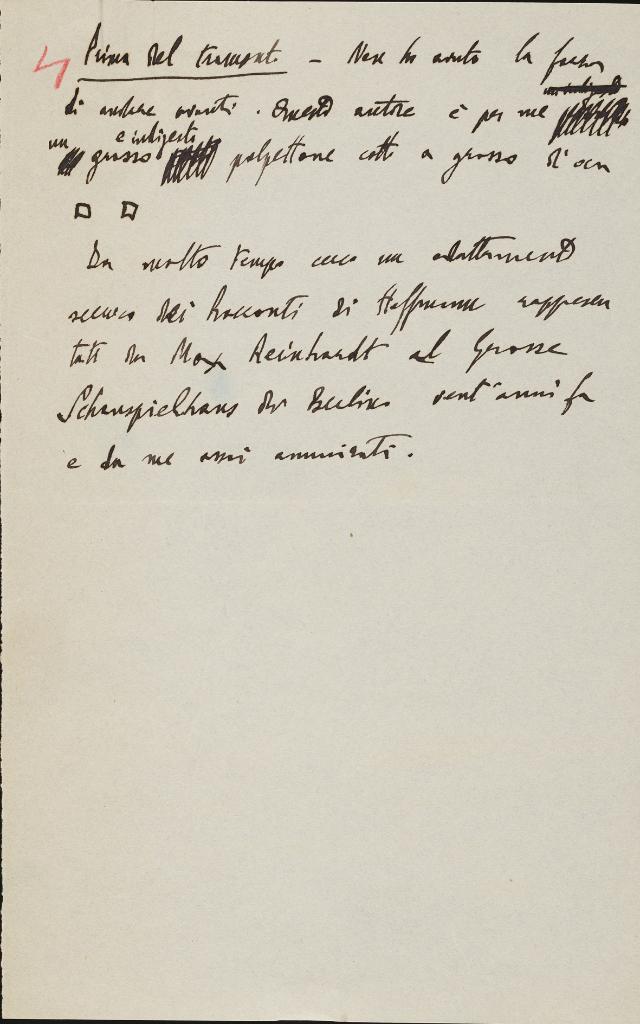 Prima del tramonto – Non ho avuto la forza
di andare avanti. Questo autore è per me
un grosso e indigesto polpettone cotto a grasso d'oca
Da molto tempo cerco un adattamento
scenico dei Racconti di Hoffmann rappresen
tati da Max Reinhardt al Grosse
Schauspielhaus di Berlino vent'anni fa
e da me assai ammirati.